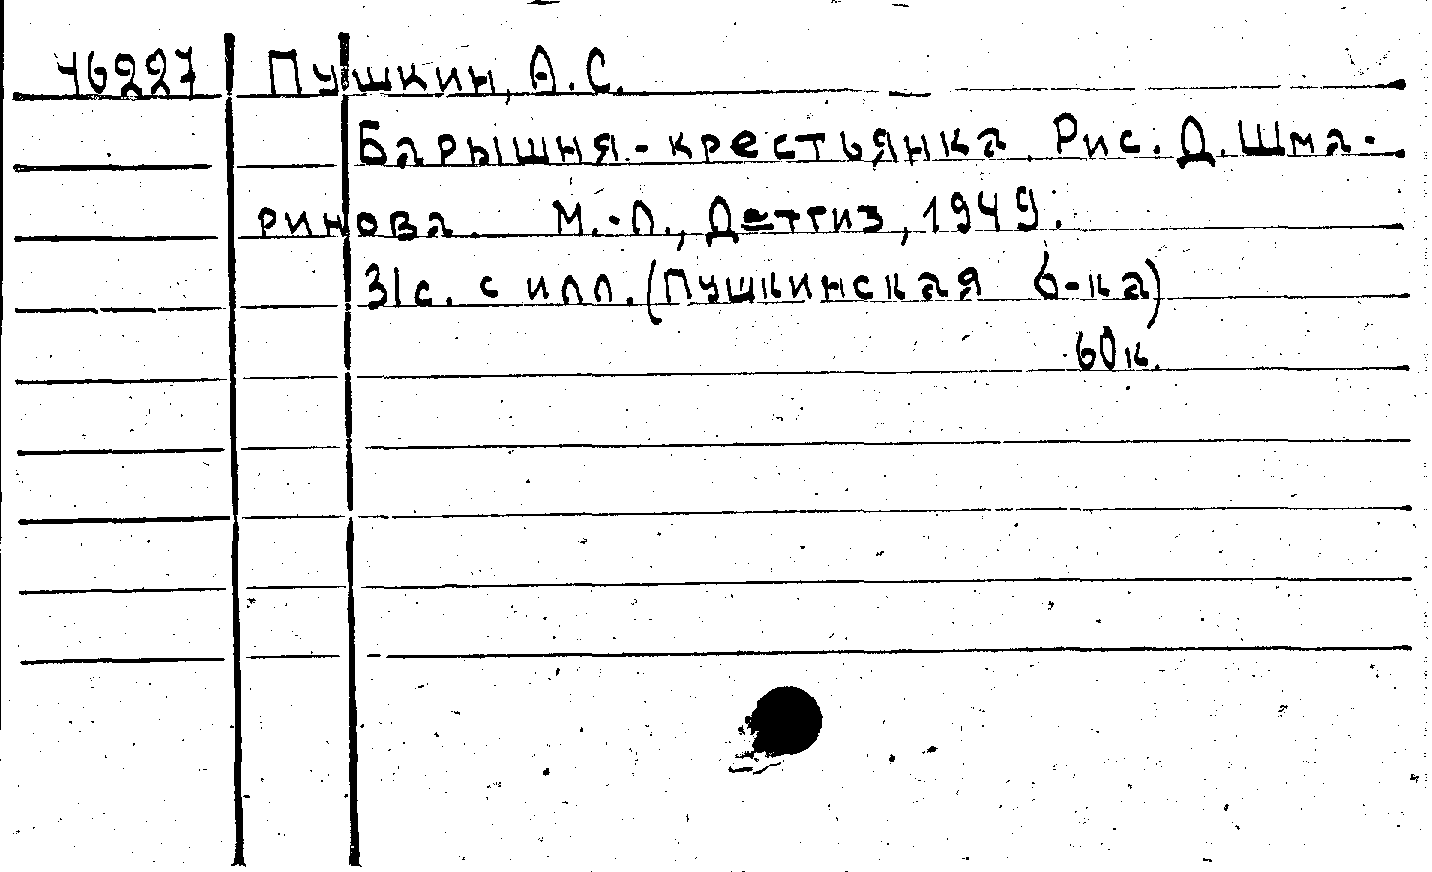 46227 Пушкин, А.С.
Барышня-крестьянка. Рис. Д. Шма-
ринова. М.-Л., Детгиз, 1949.
31с. с илл. (Пушкинская б-ка)
60к.